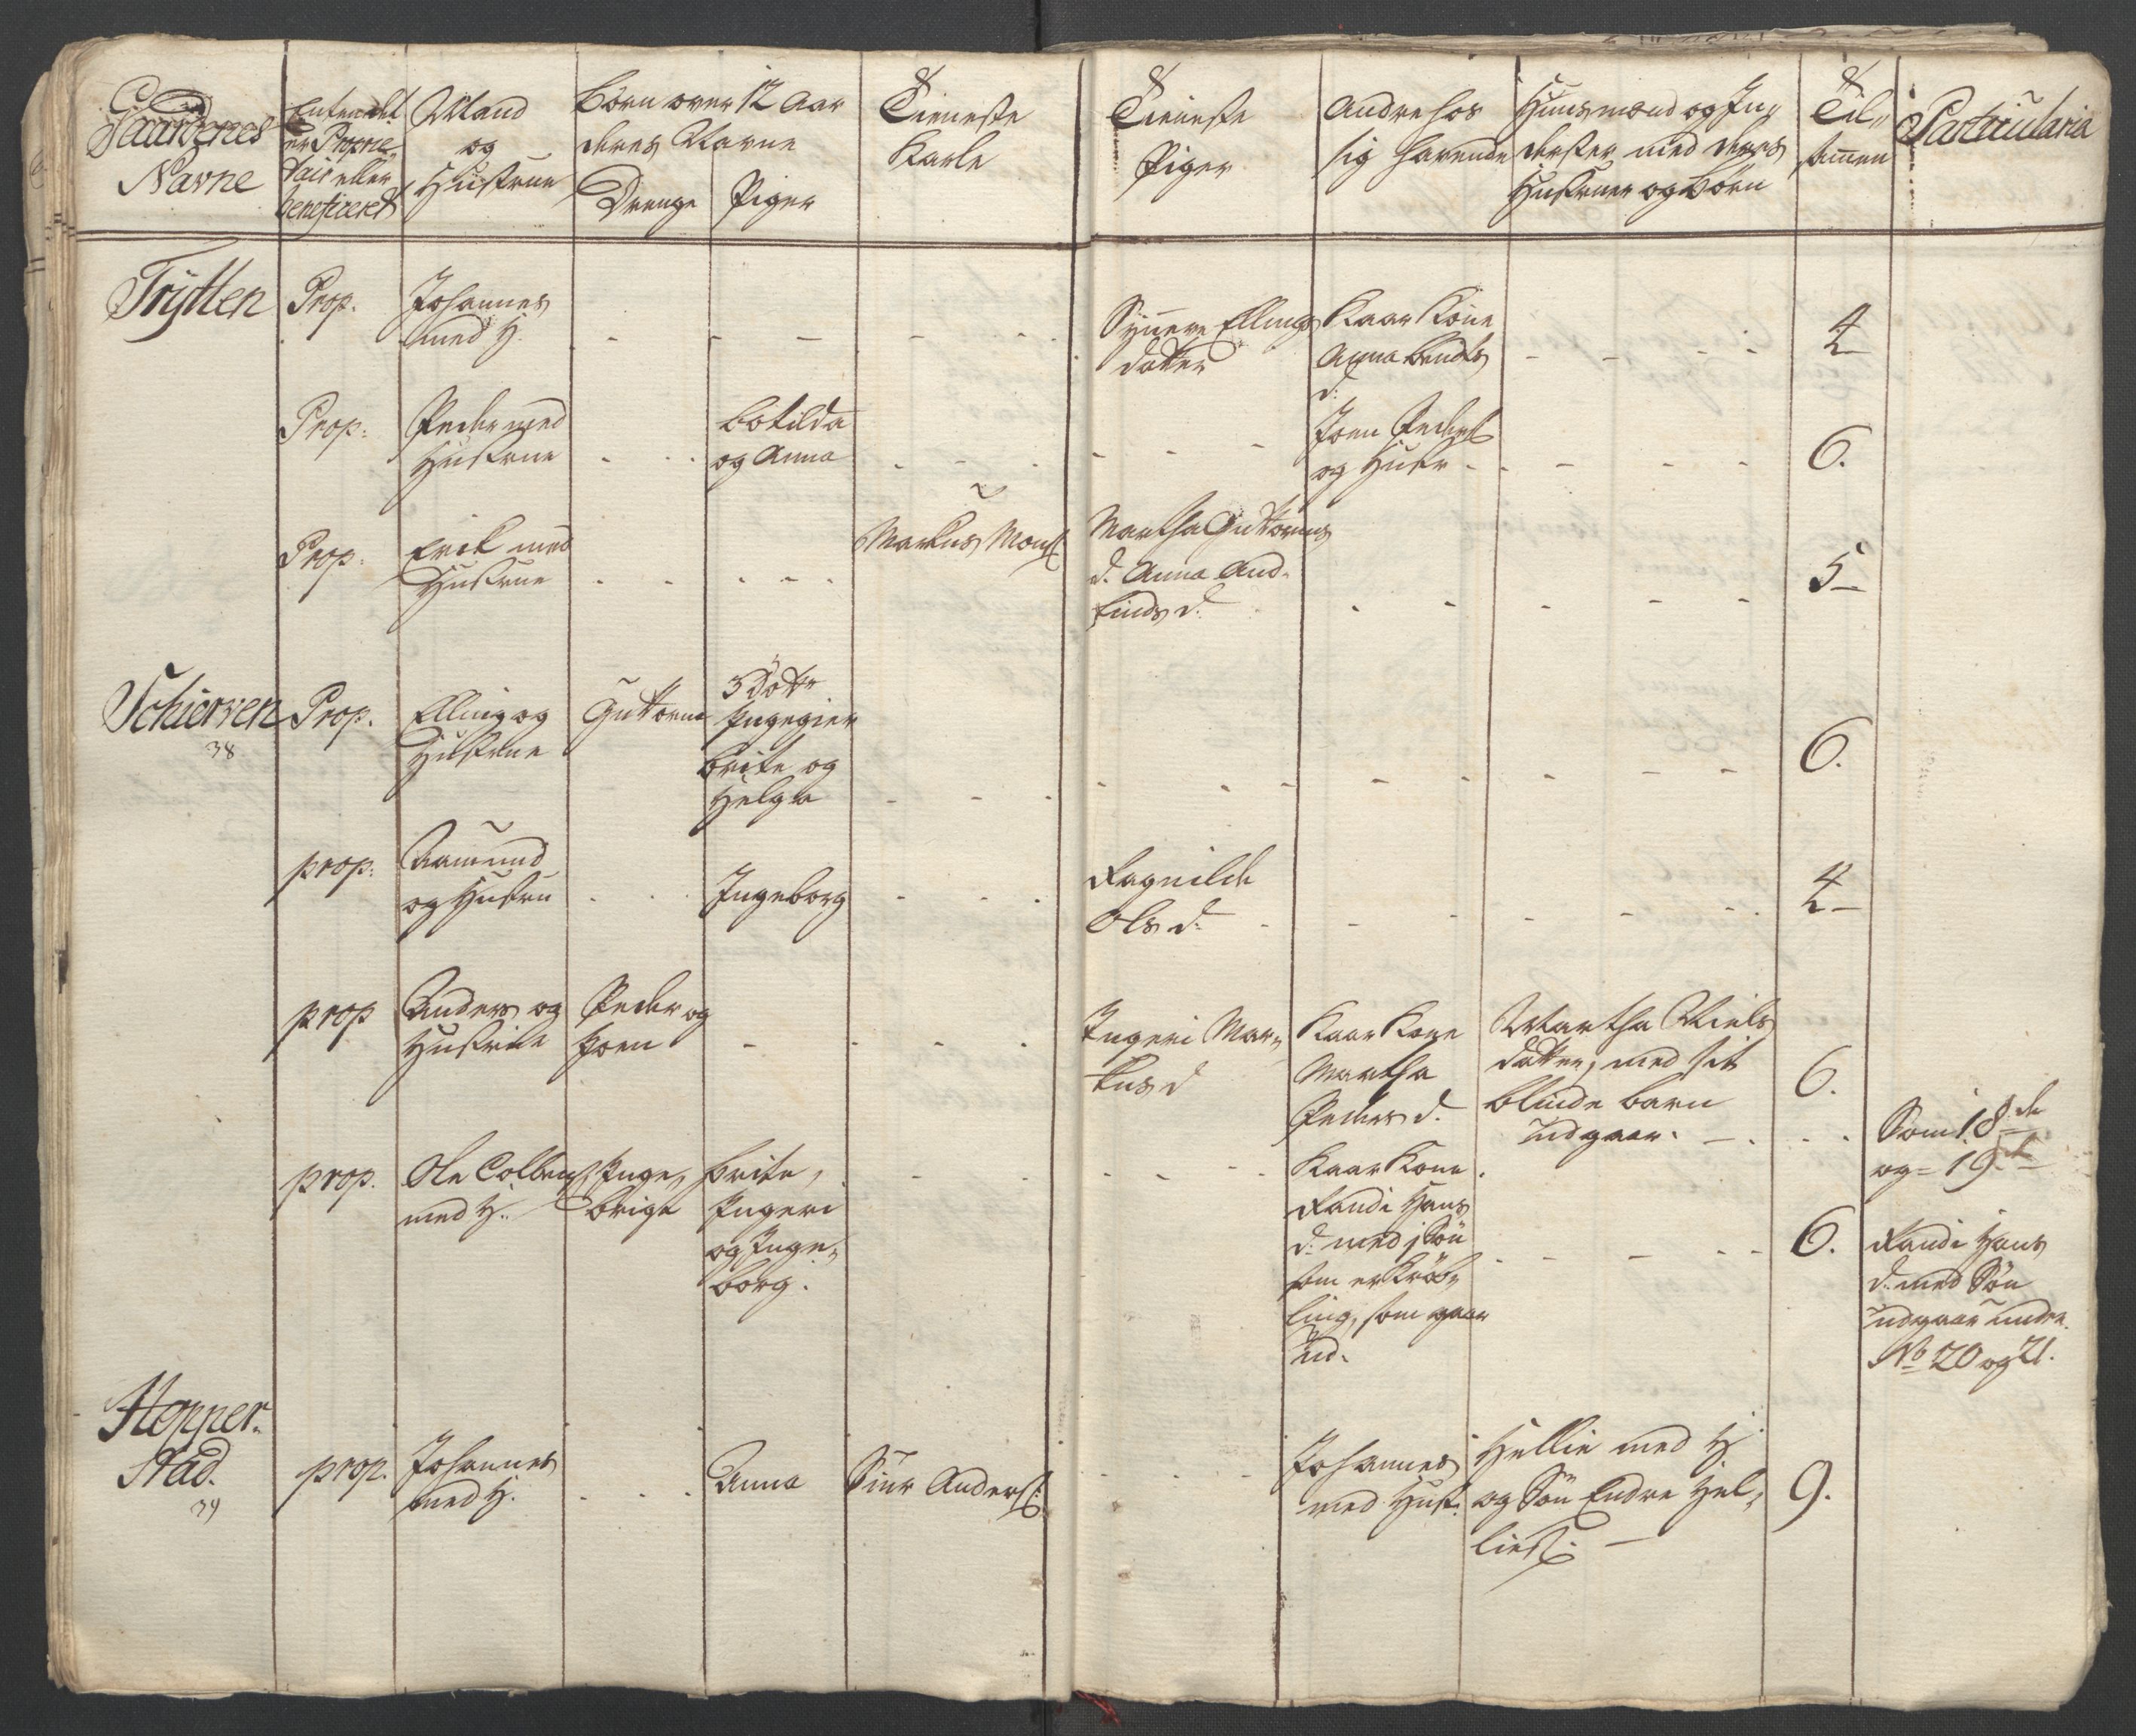 Gaardenes
Navne
Enten det
er Proprie-
tair eller
beneficeret
Mand
og
Hustrue
Børn over 12 Aar
deres Navne
Drenge
Piger
Tieneste
Karle
Tieneste
Piger
Andre hos
sig havende
Huusmænd og In-
derster med deres
Hustruer og Børn
Til-
samen
Particularia
Trÿtten
Prop.
Johannes
med H.
Synneve Ellings
datter
Kaar Kone
Anna Bendts
d:
4
Prop:
Peder med
Hustrue
Botilda
og Anna
Joen Peders
og Hustr
6.
Prop:
Erik med
Hustrue
Markus Mons
Martha Guttorms
d. Anna And-
finds d.
5
Schierven
38
Prop.
Elling og
Hustrue
Guttorm
3 Døttr
Ingegier
Brite og
Helga
6.
prop:
Aamund
og Hustru
Ingeborg
Ragnilde
Ols d.
4
prop
Anders og
Hustrue
Peder og
Joen
Ingeri Mar-
kus d
Kaar Kone
Martha
Peders d.
Martha Niels
datter, med sit
blinde barn
udgaar.
6.
Som 18de
og 19de
prop.
Ole Colbens
med H.
Inge-
brigt
Brite,
Ingeri
og Inge-
borg.
Kaar Kone
Randi Hans
d. med 1 Søn
som er Krøb-
ling, som gaar
ud.
6.
Randi Hans
d. med Søn
udgaar under
No 20 og 21.
Hopper-
stad.
39
prop.
Johannes
med H.
Anna
Siur Anders:
Johannes
med Hust.
Hellie med H.
og Søn Endre Hel-
lies:
9.